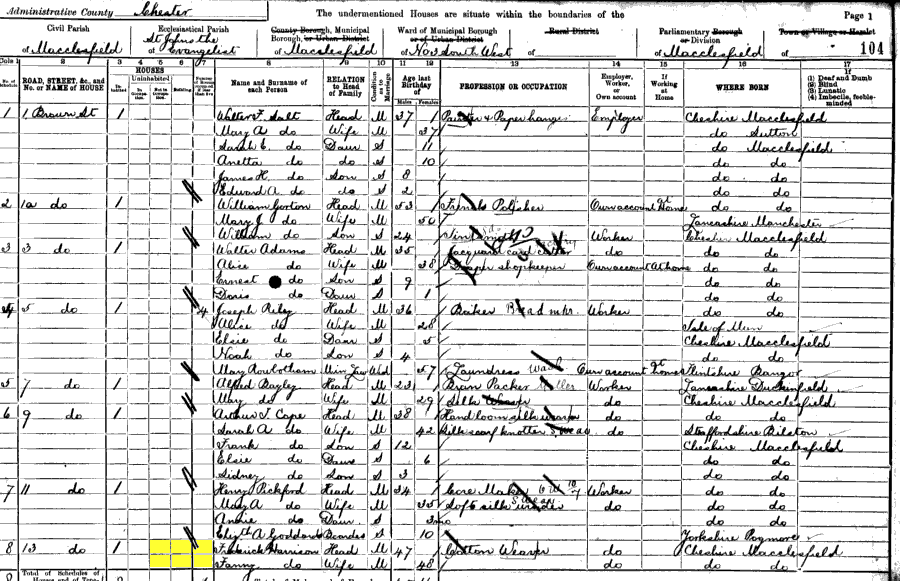 Administrative County Chester The undermentioned Houses are situate within the boundaries of the Page 1
Civil Parish Ecclesiastical Parish County Borough, Municipal Borough, or Urban District Ward of Municipal Borough or of Urban District Rural District Parliamentary Borough or Division Town or Village or Hamlet
of Macclesfield of St Johns the Evangelist of Macclesfield of No 3 South West of of Macclesfield of 104
Cols 1 2 3 4 5 6 7 8 9 10 11 12 13 14 15 16 17
ROAD, STREET, &c., and No. or NAME of HOUSE HOUSES Inhabited Uninhabited In Occupation Not in Occupation Building Name and Surname of each Person RELATION to Head of Family Condition as to Marriage Age last Birthday of Males Females PROFESSION OR OCCUPATION Employer, Worker, or Own account If Working at Home WHERE BORN If (1) Deaf and Dumb (2) Blind (3) Lunatic (4) Imbecile, feeble-minded
1 1 Brown St 1 Walter F. Salt Head M 37 Painter & Paperhanger Employer Cheshire Macclesfield
Mary A do Wife M 37 do Sutton
Sarah E. do Daur S 11 do Macclesfield
Anetta do do S 10 do do
James H. do Son S 8 do do
Edward A. do do S 2 do do
2 1a do 1 William Gorton Head M 53 French Polisher Own account At Home do do
Mary J do Wife M 50 Lancashire Manchester
William do Son S 24 Worker Cheshire Macclesfield
3 3 do 1 Walter Adams Head M 35 Jacquard card cutter do do do
Alice do Wife M 38 Draper shopkeeper Own account At home do do
Ernest do Son S 9 do do
Doris do Daur S 1 do do
4 5 do 1 4 Joseph Riley Head M 36 Baker Bread mkr. Worker do do
Alice do Wife M 28 Isle of Man
Elsie do Daur S 5 Cheshire Macclesfield
Noah do Son S 4 do do
Mary Rowbotham Mn Law Wd 57 Laundress Wash Own account At home Flintshire Bangor
5 7 do 1 Alfred Bayley Head M 23 Worker Lancashire Duckinfield
May do Wife M 29 Silk do Cheshire Macclesfield
6 9 do 1 Arthur T. Cape Head M 38 Hand loom silk weaver do do do
Sarah A do Wife M 42 Silk scarf knotter do Staffordshire Bilston
Frank do Son S 12 Cheshire Macclesfield
Elsie do Daur S 6 do do
Sidney do Son S 3 do do
7 11 do 1 Henry Pickford Head M 34 Core Maker Worker do do
Mary A do Wife M 35 Soft silk winder do do do
Annie do Daur S 3mo do do
Elizth A Goddard Boarder S 10 Yorkshire Pogmore
8 13 do 1 Frederick Harrison Head M 47 Cotton Weaver do Cheshire Macclesfield
Fanny do Wife M 48 do do do
Total of Schedules of